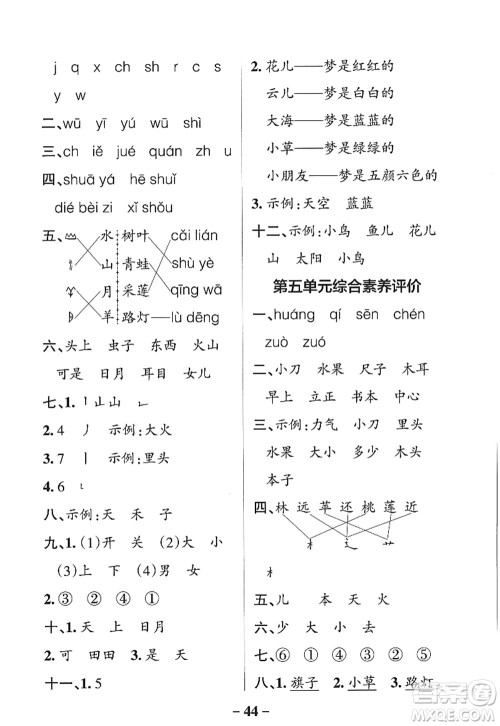 j q x zh ch sh r
y w
二、wū yī wǔ shì
三、chì iě jué quán zǐ
四、shuā yá mò shuǐ
dié bèi zi xǐ shǒu
五、 水 树叶 cǎi lián
山 青蛙 shù yè
月 采莲 qīng wā
羊 路灯 lù dēng
六、头上 虫子 东西 火山
可是 日月 耳目 女儿
七、1.丨山山 ㇄
2.4 丿 示例:大火
3.7 丨 示例:里头
4.6 ㇄
八、示例:天 禾 子
九、1.(1)开 关 (2)大 小
(3)上 下 (4)男 女
2.③ ② ④ ①
十、1.上 天 日 月
2.可 田田 3.是 天
十一、1.5
2.花儿——梦是红红的
云儿——梦是白白的
大海——梦是蓝蓝的
小草——梦是绿绿的
小朋友——梦是五颜六色的
3.示例:天空 蓝蓝
十二、示例:小鸟 鱼儿 花儿
山 太阳 小鸟
第五单元综合素养评价
一、huáng qí sēn chén
zuò zuó
二、小刀 水果 尺子 木耳
早上 立正 书本 中心
三、示例:力气 小刀 力气
水果 大小 多少 木头
本子
四、林 远 苹 还 桃 莲 近
木 辶 艹
木
五、儿 本 天 火
六、少 大 小 去
七、⑥ ① ② ③ ④ ⑤
八、1.旗子 2.小草 3.路灯
44